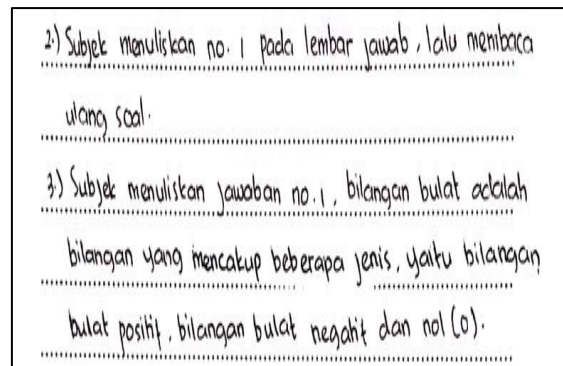 2.) Subjek menuliskan no. 1 pada lembar jawab, lalu membaca
ulang soal.
3.) Subjek menuliskan jawaban no. 1, bilangan bulat adalah
bilangan yang mencakup beberapa jenis, yaitu bilangan
bulat positif, bilangan bulat negatif dan nol (0).